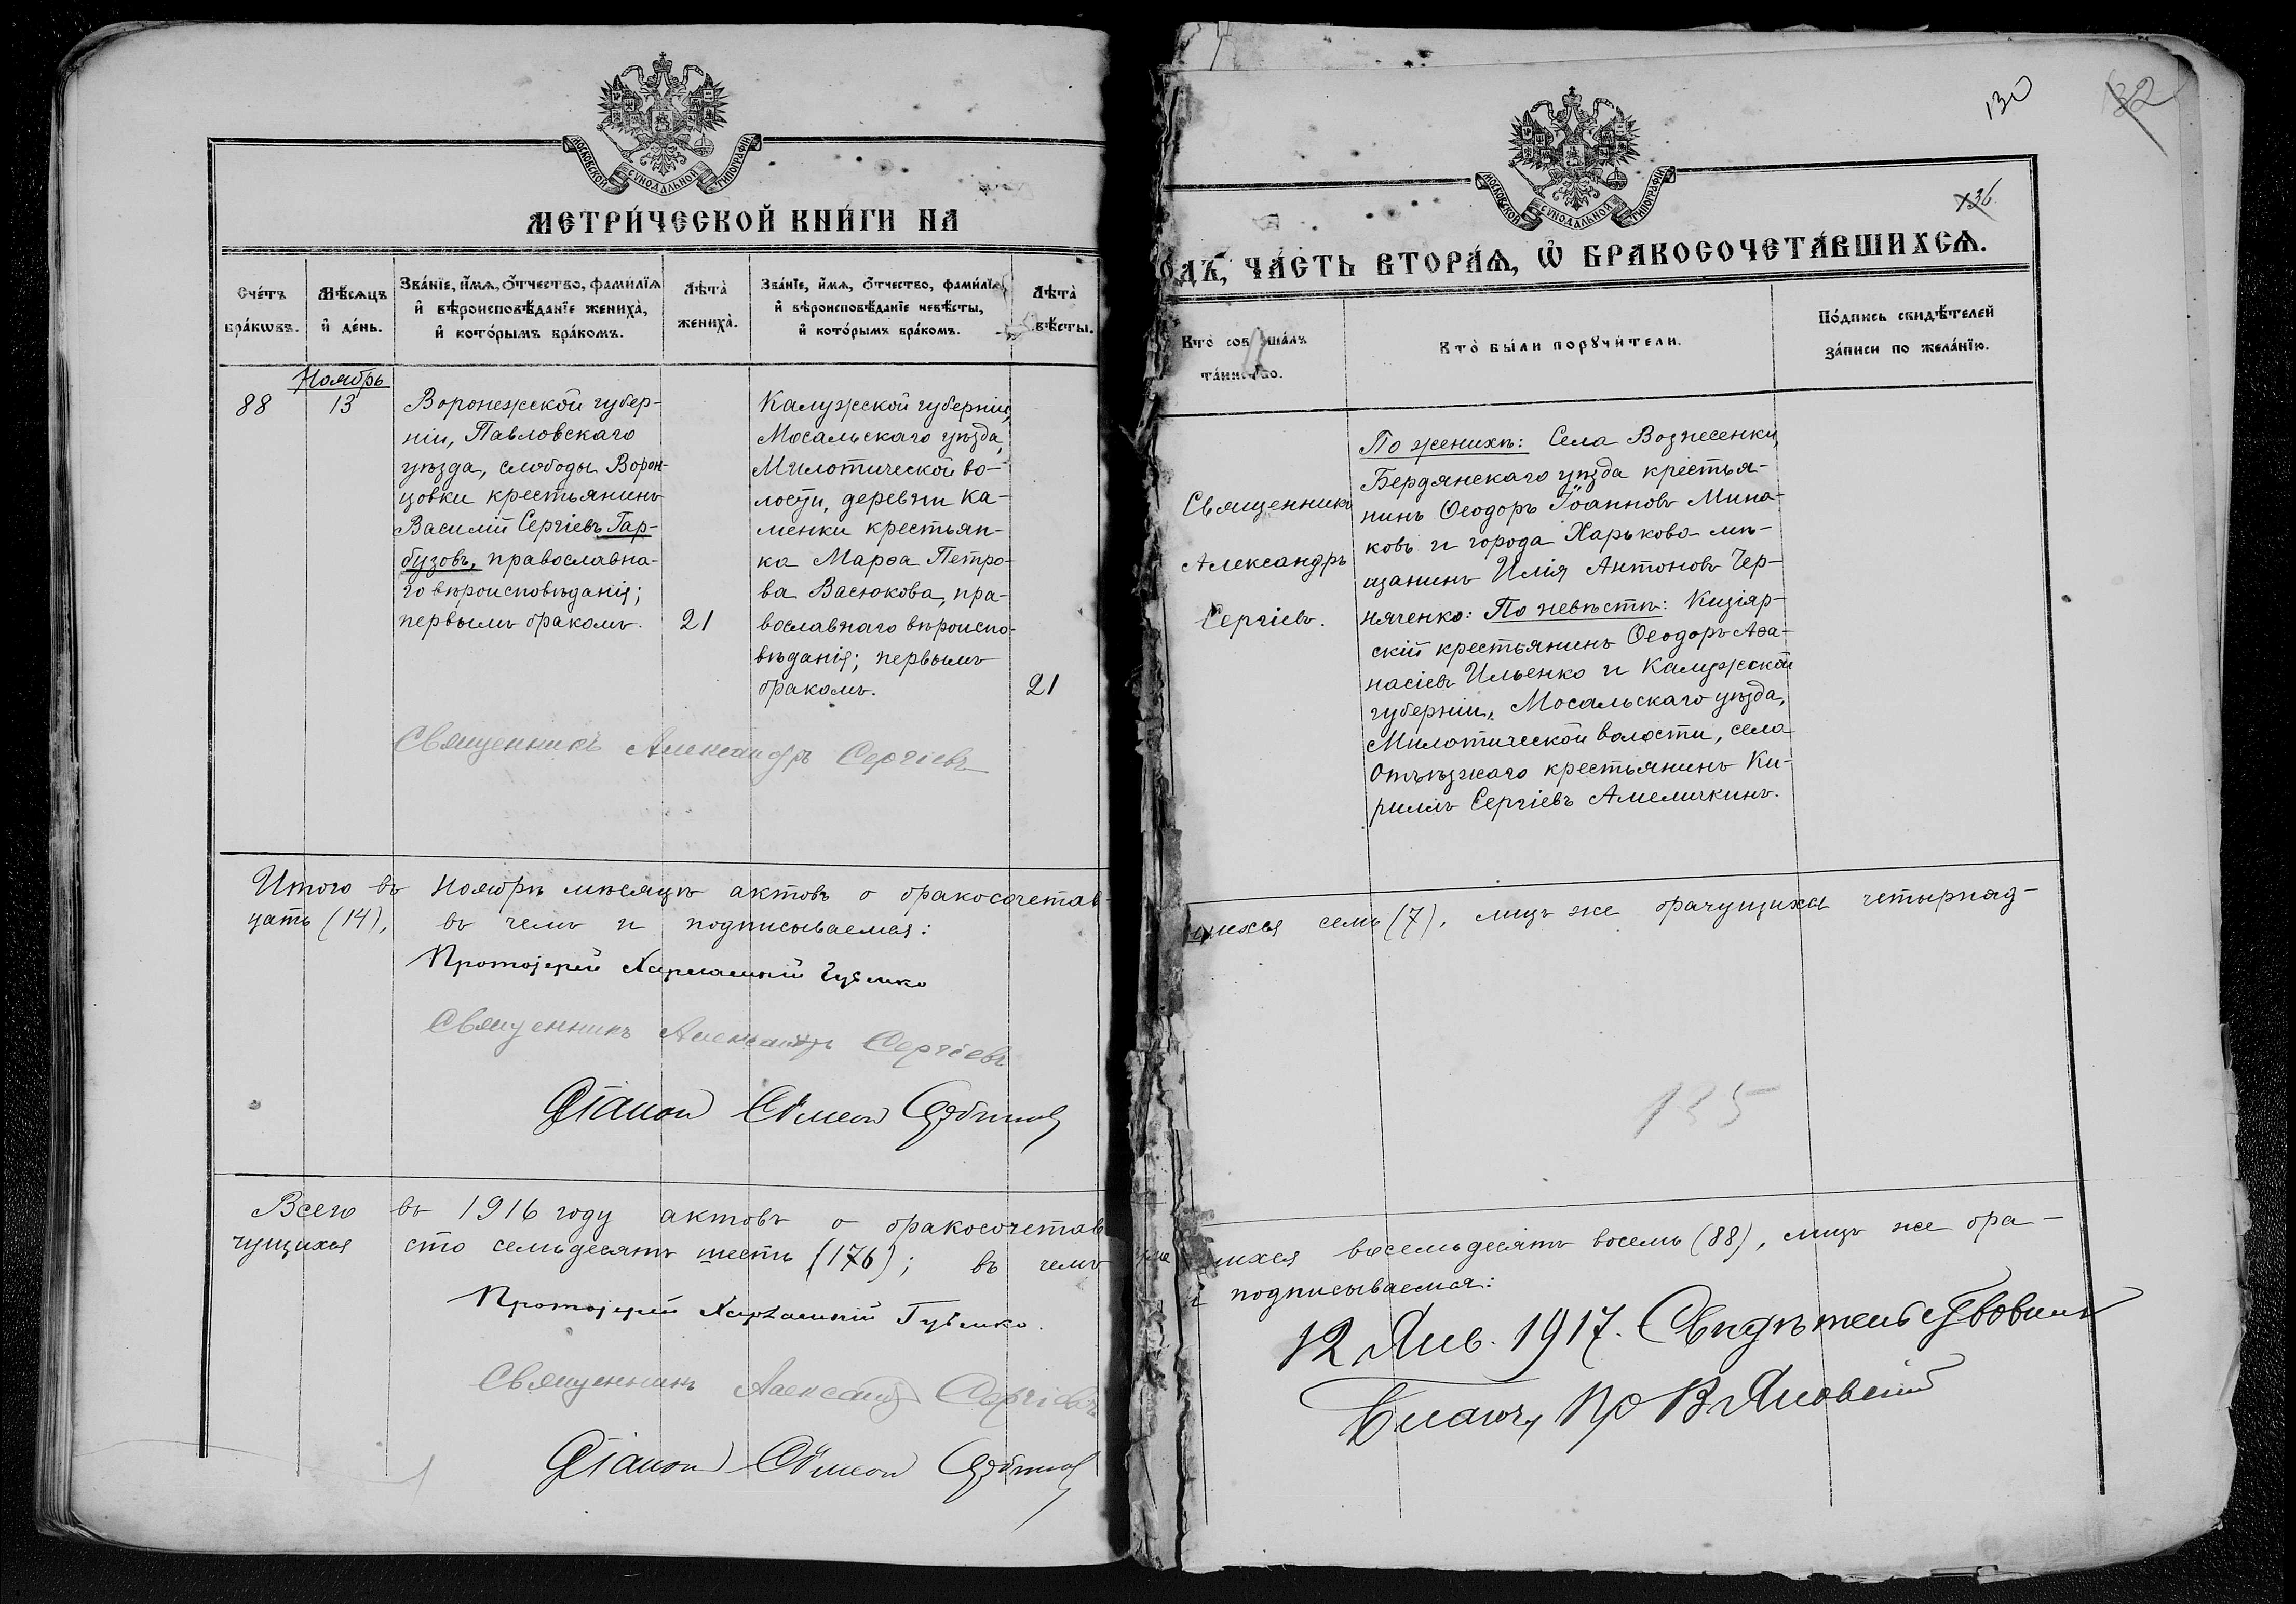 МОСКОВСКОЙ СУНОДАЛЬНОЙ ТИПОГРАФІИ
МЕТРИ́ЧЕСКОЙ КНИ́ГИ НА
Сче́тъ бра́кѡвъ.
Мѣ́сѧцъ и҆ де́нь.
Зва́нїе, и҆́мѧ, ѻ҆́тчество, фами́лїѧ
и҆ вѣроисповѣ́данїе жениха̀,
и҆ кото́рымъ бра́комъ.
Лѣ́та̀ жениха̀.
Зва́нїе, и҆́мѧ, ѻ҆́тчество, фами́лїѧ
и҆ вѣроисповѣ́данїе невѣ́сты,
и҆ кото́рымъ бра́комъ.
Лѣ́та̀
вѣ́сты.
Ноябрь
88
13
Воронежской губер-
ніи, Павловскаго
уѣзда, слободы Ворон-
цовки крестьянинъ
Василій Сергіевъ Гар-
бузовъ, православна-
го вѣроисповѣданія;
первымъ бракомъ.
21
Калужской губерніи,
Мосальскаго уѣзда,
Милотической во-
лости, деревни Ка-
менки крестьян-
ка Марѳа Петро-
ва Васюкова, пра-
вославнаго вѣроиспо-
вѣданія; первымъ
бракомъ.
21
Священникъ Александръ Сергіевъ
Итого въ Ноябрѣ мѣсяцѣ актовъ о бракосочетав-
цать (14), въ чемъ и подписываемся:
Протоіерей Харлампій Губенко
Священникъ Александръ Сергіевъ
Діаконъ Сѵмеонъ
Всего въ 1916 году актовъ о бракосочетав
чущихся сто семьдесятъ шесть (176); въ чемъ
Протоіерей Харлампій Губенко.
Священникъ Александръ Сергіевъ
Діаконъ Сѵмеонъ
130
132
136
МОСКОВСКОЙ СУНОДАЛЬНОЙ ТИПОГРАФІИ
ОДЪ, ЧА́СТЬ ВТОРА́Ѧ, Ѡ҆ БРАКОСОЧЕТА́ВШИХСѦ.
Кто̀ соверша́лъ
та́инство.
Кто̀ бы́ли порꙋчи́тели.
По́дпись свидѣ́телей
за́писи по жела́нїю.
Священникъ
Александръ
Сергіевъ.
По женихѣ: Села Вознесенки,
Бердянскаго уѣзда крестья-
нинъ Ѳеодоръ Іоанновъ Мина-
ковъ и города Харькова мѣ-
щанинъ Илія Антоновъ Чер-
няченко: По невѣстѣ: Кизіяр-
скій крестьянинъ Ѳеодоръ Аѳа-
насіевъ Ильенко и Калужской
губерніи, Мосальскаго уѣзда,
Милотической волости, села
Отъѣзжаго крестьянинъ Ки-
риллъ Сергіевъ Амеличкинъ.
шихся семь (7), лицъ же брачущихся четырнад-
135
шихся восемьдесятъ восемь (88), лицъ же бра-
и подписываемся:
12 Янв. 1917. Свидѣтельствовалъ
Благоч. Пр. В. Яновскій